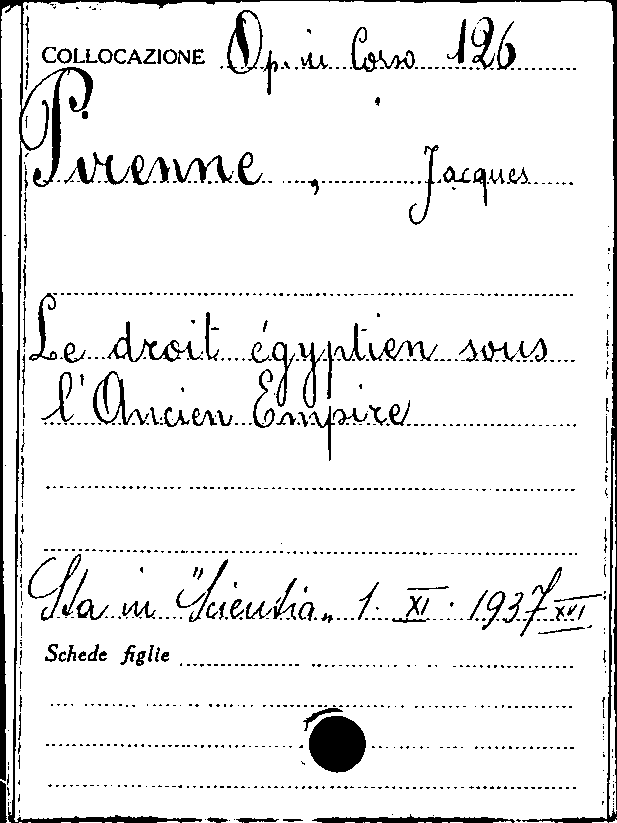 COLLOCAZIONE Op. in Corso 126
Pirenne, Jacques
Le droit égyptien sous
l'Ancien Empire
Sta in "Scientia„ 1. XI. 1937 XVI
Schede figlie